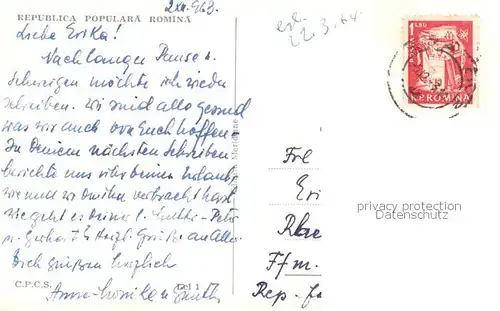 2.XII.963.
REPUBLICA POPULARĂ ROMÎNĂ
Liebe Erika!
Nach langer Pause u.
Schweigen möchte ich wieder
schreiben. Wir sind alle gesund
was wir auch von Euch hoffen.
In Deinem nächsten Schreiben
berichte uns über Deinen Urlaub,
wie und wo Du ihn verbracht hast,
wie geht es Deiner l. Mutter - Peter
u. Gerhard? Herzl. Grüße an Alle.
Dich grüßen herzlich
Anne-Monika u. Günther
C.P.C.S.
22.3.64.
1 LEU
R.P.ROMINA
Frl
Eri
Ffm.
Rep. fe
privacy protection
Datenschutz